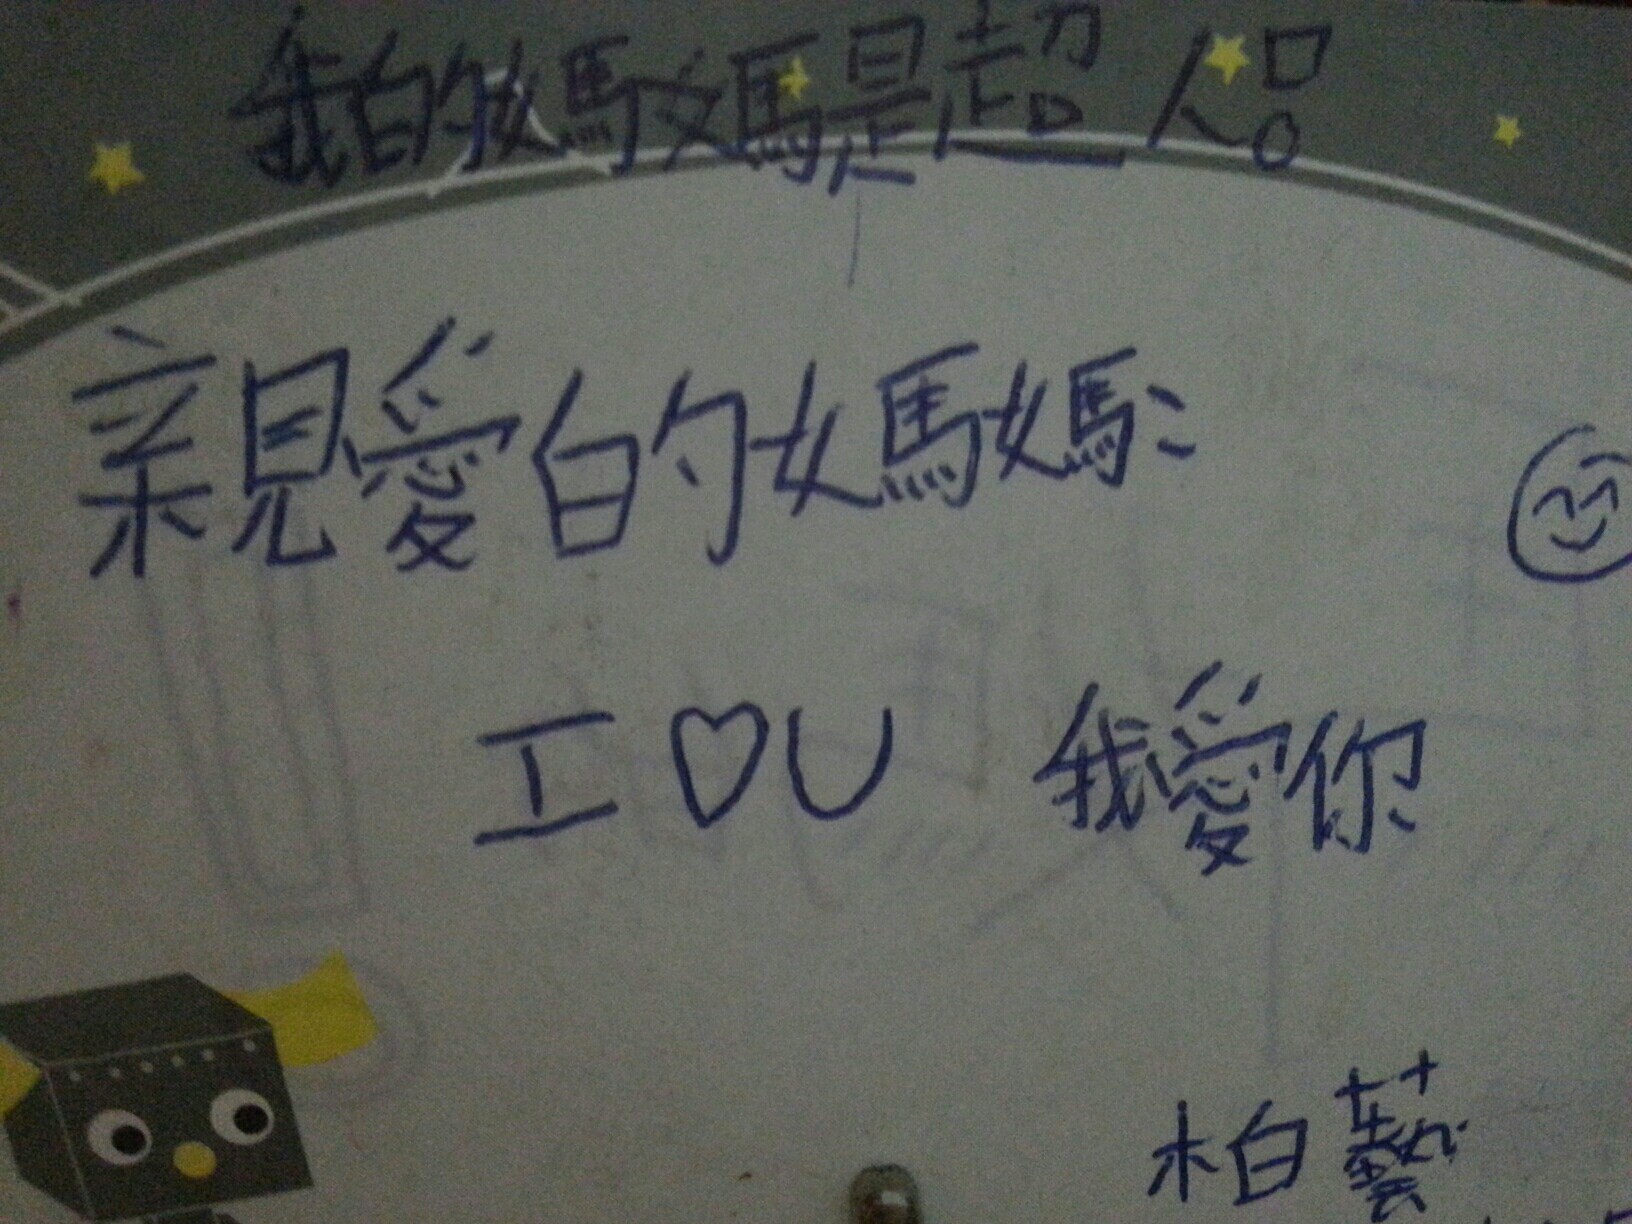 我的媽媽是超人!
親愛的媽媽:
I ♡ U 我愛你
柏藝